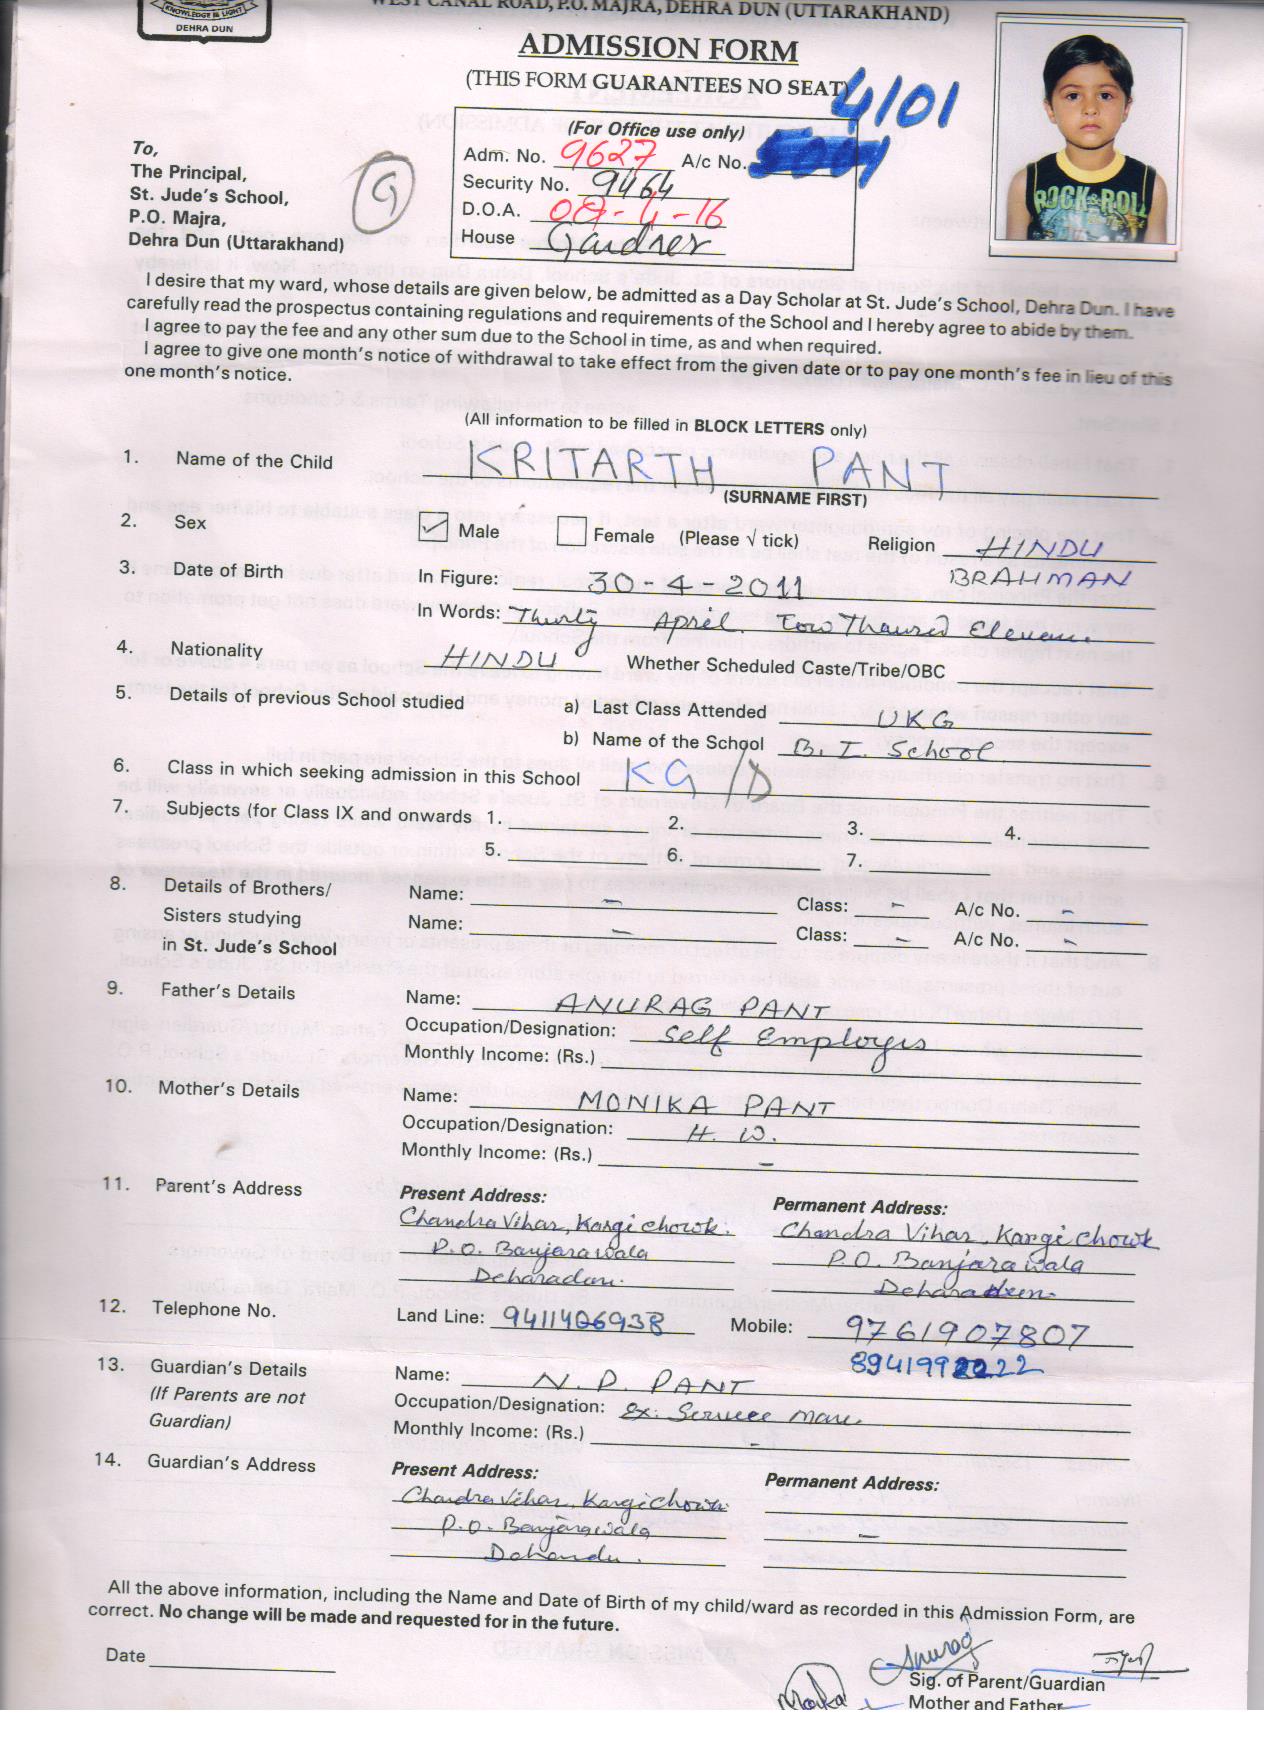 KNOWLEDGE IS LIGHT
DEHRA DUN
WEST CANAL ROAD, P.O. MAJRA, DEHRA DUN (UTTARAKHAND)
ADMISSION FORM
(THIS FORM GUARANTEES NO SEAT)
4101
(For Office use only)
Adm. No. 9627 A/c No.
Security No. 9464
D.O.A. 08-4-16
House Gardner
To,
The Principal,
St. Jude's School,
P.O. Majra,
Dehra Dun (Uttarakhand)
G
ROCK & ROLL
I desire that my ward, whose details are given below, be admitted as a Day Scholar at St. Jude's School, Dehra Dun. I have
carefully read the prospectus containing regulations and requirements of the School and I hereby agree to abide by them.
I agree to pay the fee and any other sum due to the School in time, as and when required.
I agree to give one month's notice of withdrawal to take effect from the given date or to pay one month's fee in lieu of this
one month's notice.
(All information to be filled in BLOCK LETTERS only)
1. Name of the Child KRITARTH PANT
(SURNAME FIRST)
2. Sex Male Female (Please √ tick) Religion HINDU
BRAHMAN
3. Date of Birth In Figure: 30-4-2011
In Words: Thirty April Tow Thaused Elevan.
4. Nationality HINDU Whether Scheduled Caste/Tribe/OBC
5. Details of previous School studied a) Last Class Attended UKG
b) Name of the School B. I. School
6. Class in which seeking admission in this School KG/D
7. Subjects (for Class IX and onwards 1. 2. 3. 4.
5. 6. 7.
8. Details of Brothers/ Name: – Class: – A/c No. –
Sisters studying Name: – Class: – A/c No. –
in St. Jude's School
9. Father's Details Name: ANURAG PANT
Occupation/Designation: Self Employis
Monthly Income: (Rs.)
10. Mother's Details Name: MONIKA PANT
Occupation/Designation: H. W.
Monthly Income: (Rs.) –
11. Parent's Address Present Address: Permanent Address:
Chandra Vihar, Kargi chowk. Chandra Vihar, Kargi chowk
P.O. Banjarawala P.O. Banjarawala
Deharadun. Deharadun.
12. Telephone No. Land Line: 9411406938 Mobile: 9761907807
8941992222
13. Guardian's Details Name: N. D. PANT
(If Parents are not Occupation/Designation: Ex. Service man.
Guardian) Monthly Income: (Rs.) –
14. Guardian's Address Present Address: Permanent Address:
Chandra Vihar, Kargi chowk
P.O. Banjarawala –
Dehandu.
All the above information, including the Name and Date of Birth of my child/ward as recorded in this Admission Form, are
correct. No change will be made and requested for in the future.
Date
Anurag
Sig. of Parent/Guardian
Monika Mother and Father